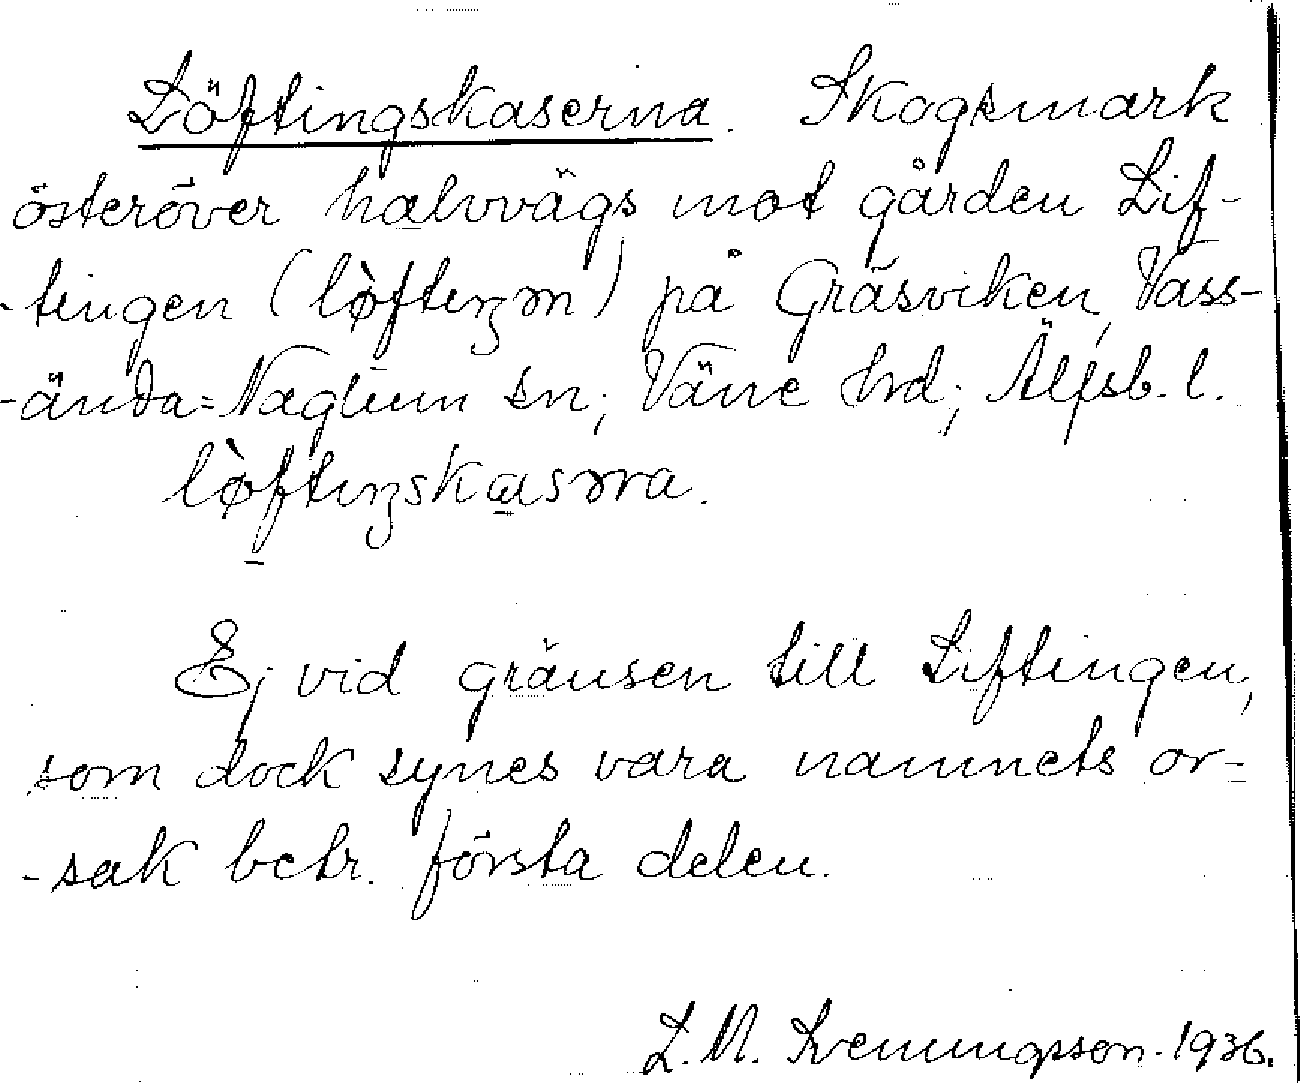 Löftingskaserna. Skogsmark
österöver halvvägs mot gården Lif-
-tingen (lòftıŋən) på Gräsviken, Väss-
-ända=Naglum sn; Väne hrd; Älfsb. l.
lòftıŋskasəra.
Ej vid gränsen till Liftingen,
som dock synes vara namnets or-
-sak betr. första delen.
L. M. Svenungsson. 1936.